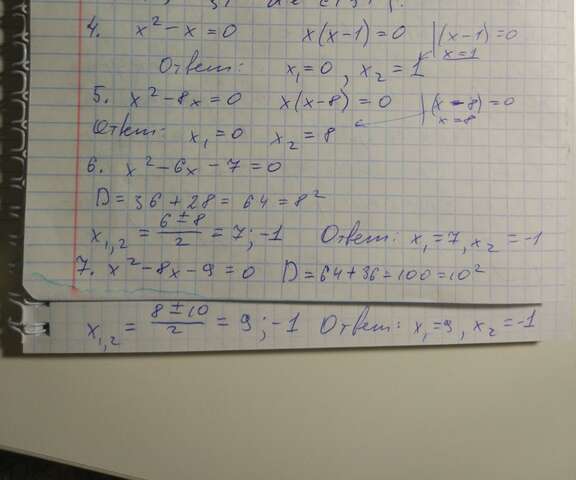 4. x² - x = 0 x(x-1) = 0 | (x-1) = 0
x=1
Ответ: x₁=0, x₂=1
5. x² - 8x = 0 x(x-8) = 0 | (x-8) = 0
x=8
Ответ: x₁=0 x₂=8
6. x² - 6x - 7 = 0
D = 36 + 28 = 64 = 8²
x₁,₂ = (6 ± 8)/2 = 7; -1 Ответ: x₁=7, x₂=-1
7. x² - 8x - 9 = 0 D = 64 + 36 = 100 = 10²
x₁,₂ = (8 ± 10)/2 = 9; -1 Ответ: x₁=9, x₂=-1